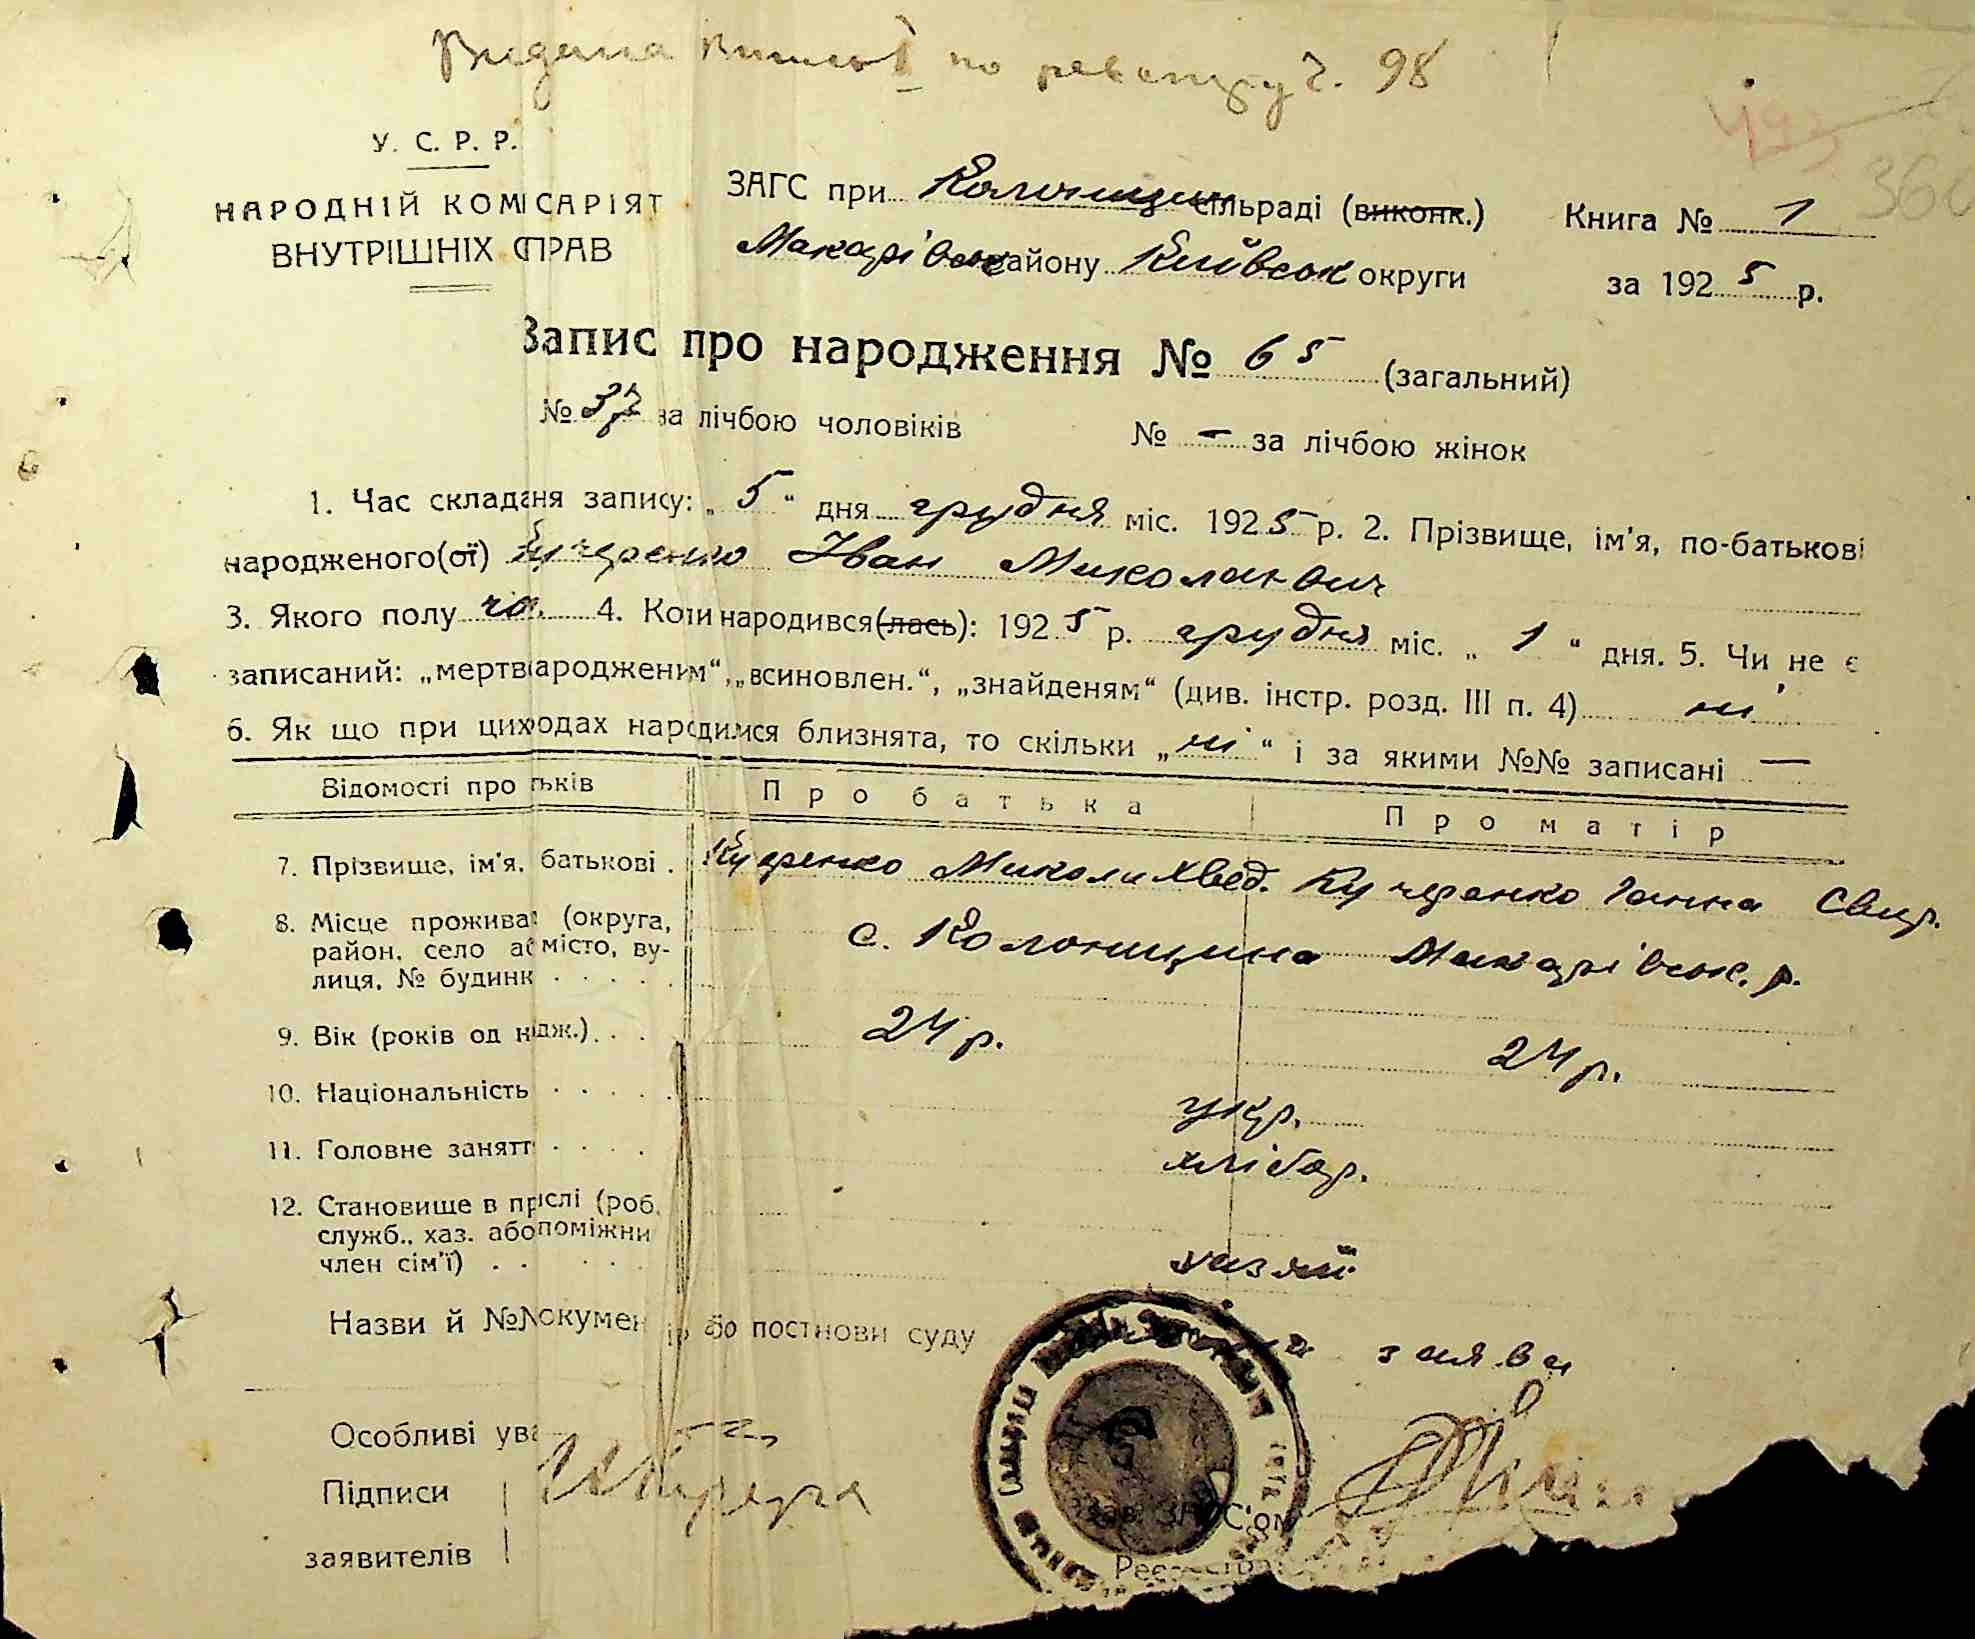 Видана по реєстру Ч. 98
У. С. Р. Р.
НАРОДНІЙ КОМІСАРІЯТ
ВНУТРІШНІХ СПРАВ
ЗАГС при Колонщин сільраді (виконк.)
Макарівськ району Київськ округи
Книга № 1
за 1925 р.
493
Запис про народження № 65 (загальний)
№ 37 за лічбою чоловіків № – за лічбою жінок
1. Час складаня запису: „5“ дня грудня міс. 1925 р. 2. Прізвище, ім'я, по-батькові
народженого(ої) Кучеренко Іван Миколаєвич
3. Якого полу чол. 4. Коли народився(лась): 1925 р. грудня міс. „1“ дня. 5. Чи не є
записаний: „мертвіародженим“, „всиновлен.“, „знайденям“ (див. інстр. розд. III п. 4) ні
6. Як що при цих одах народилися близнята, то скільки „ні“ і за якими №№ записані —
Відомості про тьків Про батька Про матір
7. Прізвище, ім'я, батькові . Кучеренко Микола Хвед. Кучеренко Ганна Свир.
8. Місце прожива (округа,
район, село а місто, ву-
лиця, № будинк . . . . .
с. Колонщина Макарівськ. р.
9. Вік (років од н дж.) . . . 24 р. 24 р.
10. Національність . . . . . укр.
11. Головне занятт . . . . хлібор.
12. Становище в пр слі (роб.
служб., хаз. або поміжни
член сім'ї) . . . . .
хазяй
Назви й №№ окумен ів або постанови суду заява
Особливі ува
Підписи
заявителів
Зав. ЗАГС'ом
Реєстра